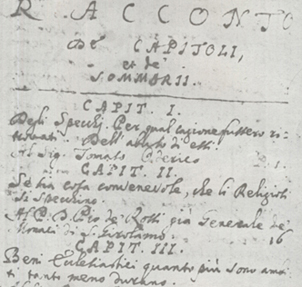 RACCONTO
de' CAPITOLI,
et de'
SOMMARII.
CAPIT. I.
Degli Specuij. Per qual cagione fussero ri-
trovati. Dell' abuso di essi.
Al Sig. Tomaso
CAPIT. II.
Se sia cosa convenevole, che li Religiosi
si specchino.
Al P. D. Pio de' Rossi già Generale de
Monaci di S. Girolamo. 16
CAPIT. III.
Beni Ecclesiastici quanto più sono ama
ti tanto meno durano.